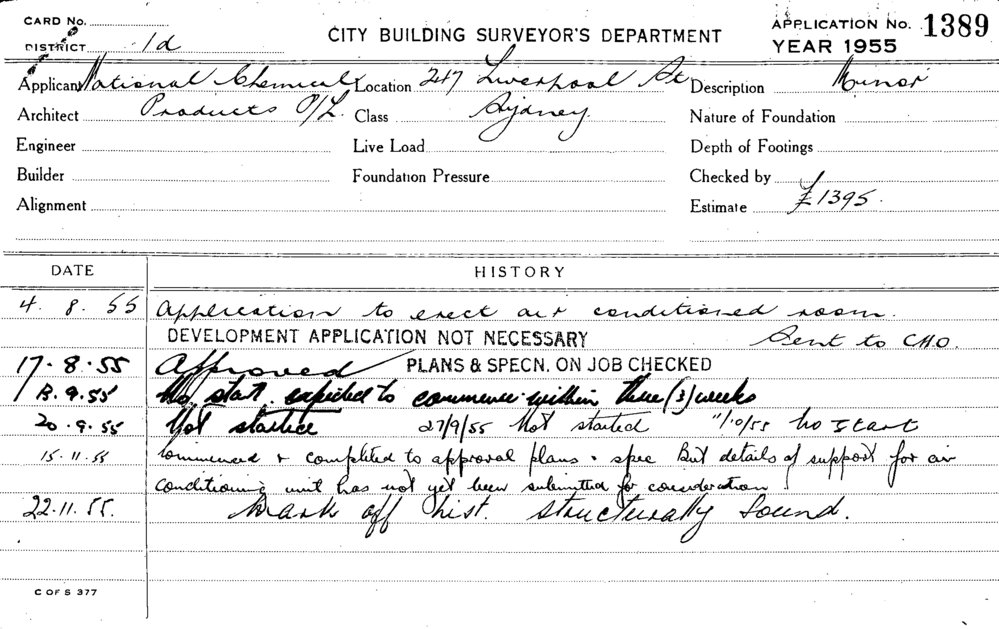 CARD No.
DISTRICT 1d
CITY BUILDING SURVEYOR'S DEPARTMENT
APPLICATION No. 1389
YEAR 1955
Applicant National Chemical Location 247 Liverpool St Description Minor
Architect Products P/L. Class Sydney Nature of Foundation
Engineer Live Load Depth of Footings
Builder Foundation Pressure Checked by
Alignment Estimate £1395.
DATE HISTORY
4. 8. 55 Application to erect air conditioned room.
DEVELOPMENT APPLICATION NOT NECESSARY Sent to C.H.O.
17.8.55 Approved PLANS & SPECN. ON JOB CHECKED
13.9.55 No start. expected to commence within three (3) weeks
20.9.55 Not started 27/9/55 Not started 11/10/55 No Start
15.11.55 Commenced & completed to approval plans & spec But details of support for air
conditioning unit has not yet been submitted for consideration
22.11.55. Mark off hist. structurally sound.
C OF S 377